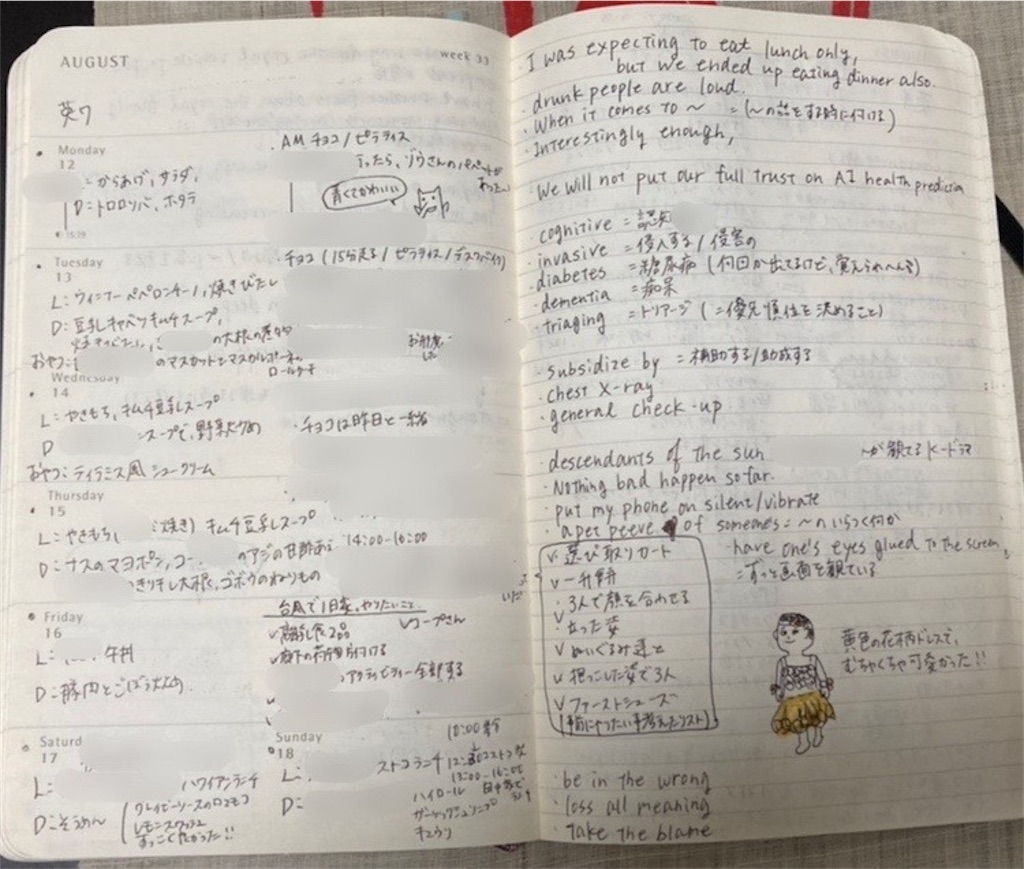 AUGUST
week 33
Monday
12
:からあげ、サラダ、
D:トロロソバ、ホタテ
AM チョコ/ピラティス
青くてかわいい
Tuesday
13
チョコ(15分走る/ピラティス/デスクバイク)
L:ウィンナーペペロンチーノ、焼きびたし
D:豆乳キャベツキムチスープ、
の大根の煮物
おやつ:
のマスカットとマスカルポーネの
ロールケーキ
お邪魔
した
Wednesday
14
L:やきもち、キムチ豆乳スープ
D
スープで、野菜炒め
・チョコは昨日と一緒
おやつ:ティラミス風 シュークリーム
Thursday
15
L:やきもち
(焼き)キムチ豆乳スープ
D:ナスのマヨポン、コー
のアジの甘酢あえ
14:00-16:00
きりぼし大根、ゴボウのねりもの
Friday
16
台風で1日家、やりたいこと
離乳食2品
コープさん
廊下の荷物片付ける
アクティビティー全部する
L:
牛丼
D:豚肉とごぼう
Saturd
17
L:
ハワイアンランチ
D:そうめん
グレイビーソースのロコモコ
レモンスカッシュ
すっごく
Sunday
18
10:00
L:
13:00-16:00
D:
ハイロール
きゅうり
I was expecting to eat lunch only,
but we ended up eating dinner also.
・drunk people are loud.
・When it comes to ~ = (~の話をする時に付ける)
・Interestingly enough,
・We will not put our full trust on AI health prediction
・cognitive = 認知
・invasive = 侵入する/侵害の
・diabetes = 糖尿病 (何回か出てるけど、覚えられへんそ)
・dementia = 痴呆
・triaging = トリアージ (=優先順位を決めること)
・subsidize by = 補助する/助成する
・chest X-ray
・general check-up
・descendants of the sun
~が観てるKードラマ
・Nothing bad happen so far.
・put my phone on silent/vibrate
・a pet peeve of someones = ~のいらつく何か
・have one's eyes glued to the screen
=ずっと画面を観ている
v 選び取りカード
v 一升餅
・3人で顔を合わせる
v 立った姿
v ぬいぐるみ達と
v 抱っこした姿で3人
v ファーストシューズ
(事前にやりたい事考えたリスト)
黄色の花柄ドレスで、
むちゃくちゃ可愛かった!!
・be in the wrong
・loss all meaning
・take the blame